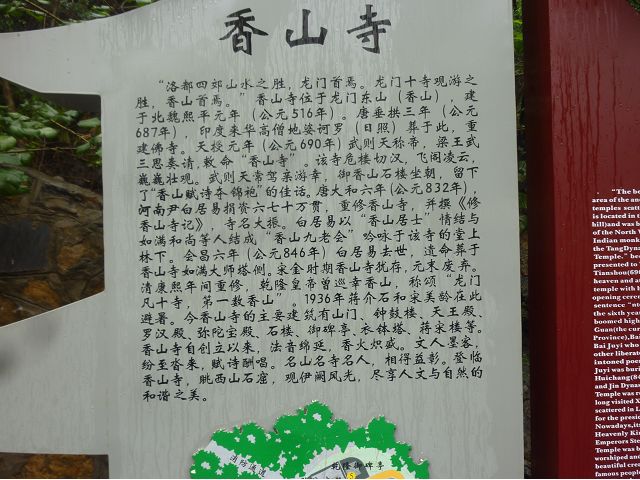 香山寺
“洛都四郊山水之胜，龙门首焉。龙门十寺观游之
胜，香山首焉。”香山寺位于龙门东山（香山），建
于北魏熙平元年（公元516年）。唐垂拱三年（公元
687年），印度来华高僧地婆诃罗（日照）葬于此，重
建佛寺。天授元年（公元690年）武则天称帝，梁王武
三思奏请，敕命“香山寺”。该寺危楼切汉，飞阁凌云，
巍巍壮观。武则天常驾亲游幸，御香山石楼坐朝，留下
了“香山赋诗夺锦袍”的佳话。唐大和六年（公元832年），
河南尹白居易捐资六七十万贯，重修香山寺，并撰《修
香山寺记》，寺名大振。白居易以“香山居士”情结与
如满和尚等人结成“香山九老会”吟咏于该寺的堂上
林下。会昌六年（公元846年）白居易去世，遗命葬于
香山寺如满大师塔侧。宋金时期香山寺犹存，元末废弃。
清康熙年间重修，乾隆皇帝曾巡幸香山，称颂“龙门
凡十寺，第一数香山”。1936年蒋介石和宋美龄在此
避暑。今香山寺的主要建筑有山门、钟鼓楼、天王殿、
罗汉殿、弥陀宝殿、石楼、御碑亭、衣钵塔、蒋宋楼等。
香山寺自创立以来，法音绵延，香火炽盛。文人墨客，
纷至沓来，赋诗酬唱。名山名寺名人，相得益彰。登临
香山寺，眺西山石窟，观伊阙风光，尽享人文与自然的
和谐之美。
消防通道
乾隆御碑亭
"The be
area of the anc
temples scatt
is located in t
hill)and was b
of the North W
Indian monk
the TangDynas
Temple." bec
presented to
Tianshou(690
heaven and at
temple with h
opening cerem
sentence "nt
the sixth year
boomed high
Guan(the cur
Province),Bai
Bai Juyi who
other liberate
intoned poem
Juyi was buri
Huichang(84
and Jin Dynas
Temple was re
long visited X
scattered in L
for the presid
Nowadays,its
Heavenly Kin
Emperors Ste
Temple was b
worshiped and
beautiful crea
famous people